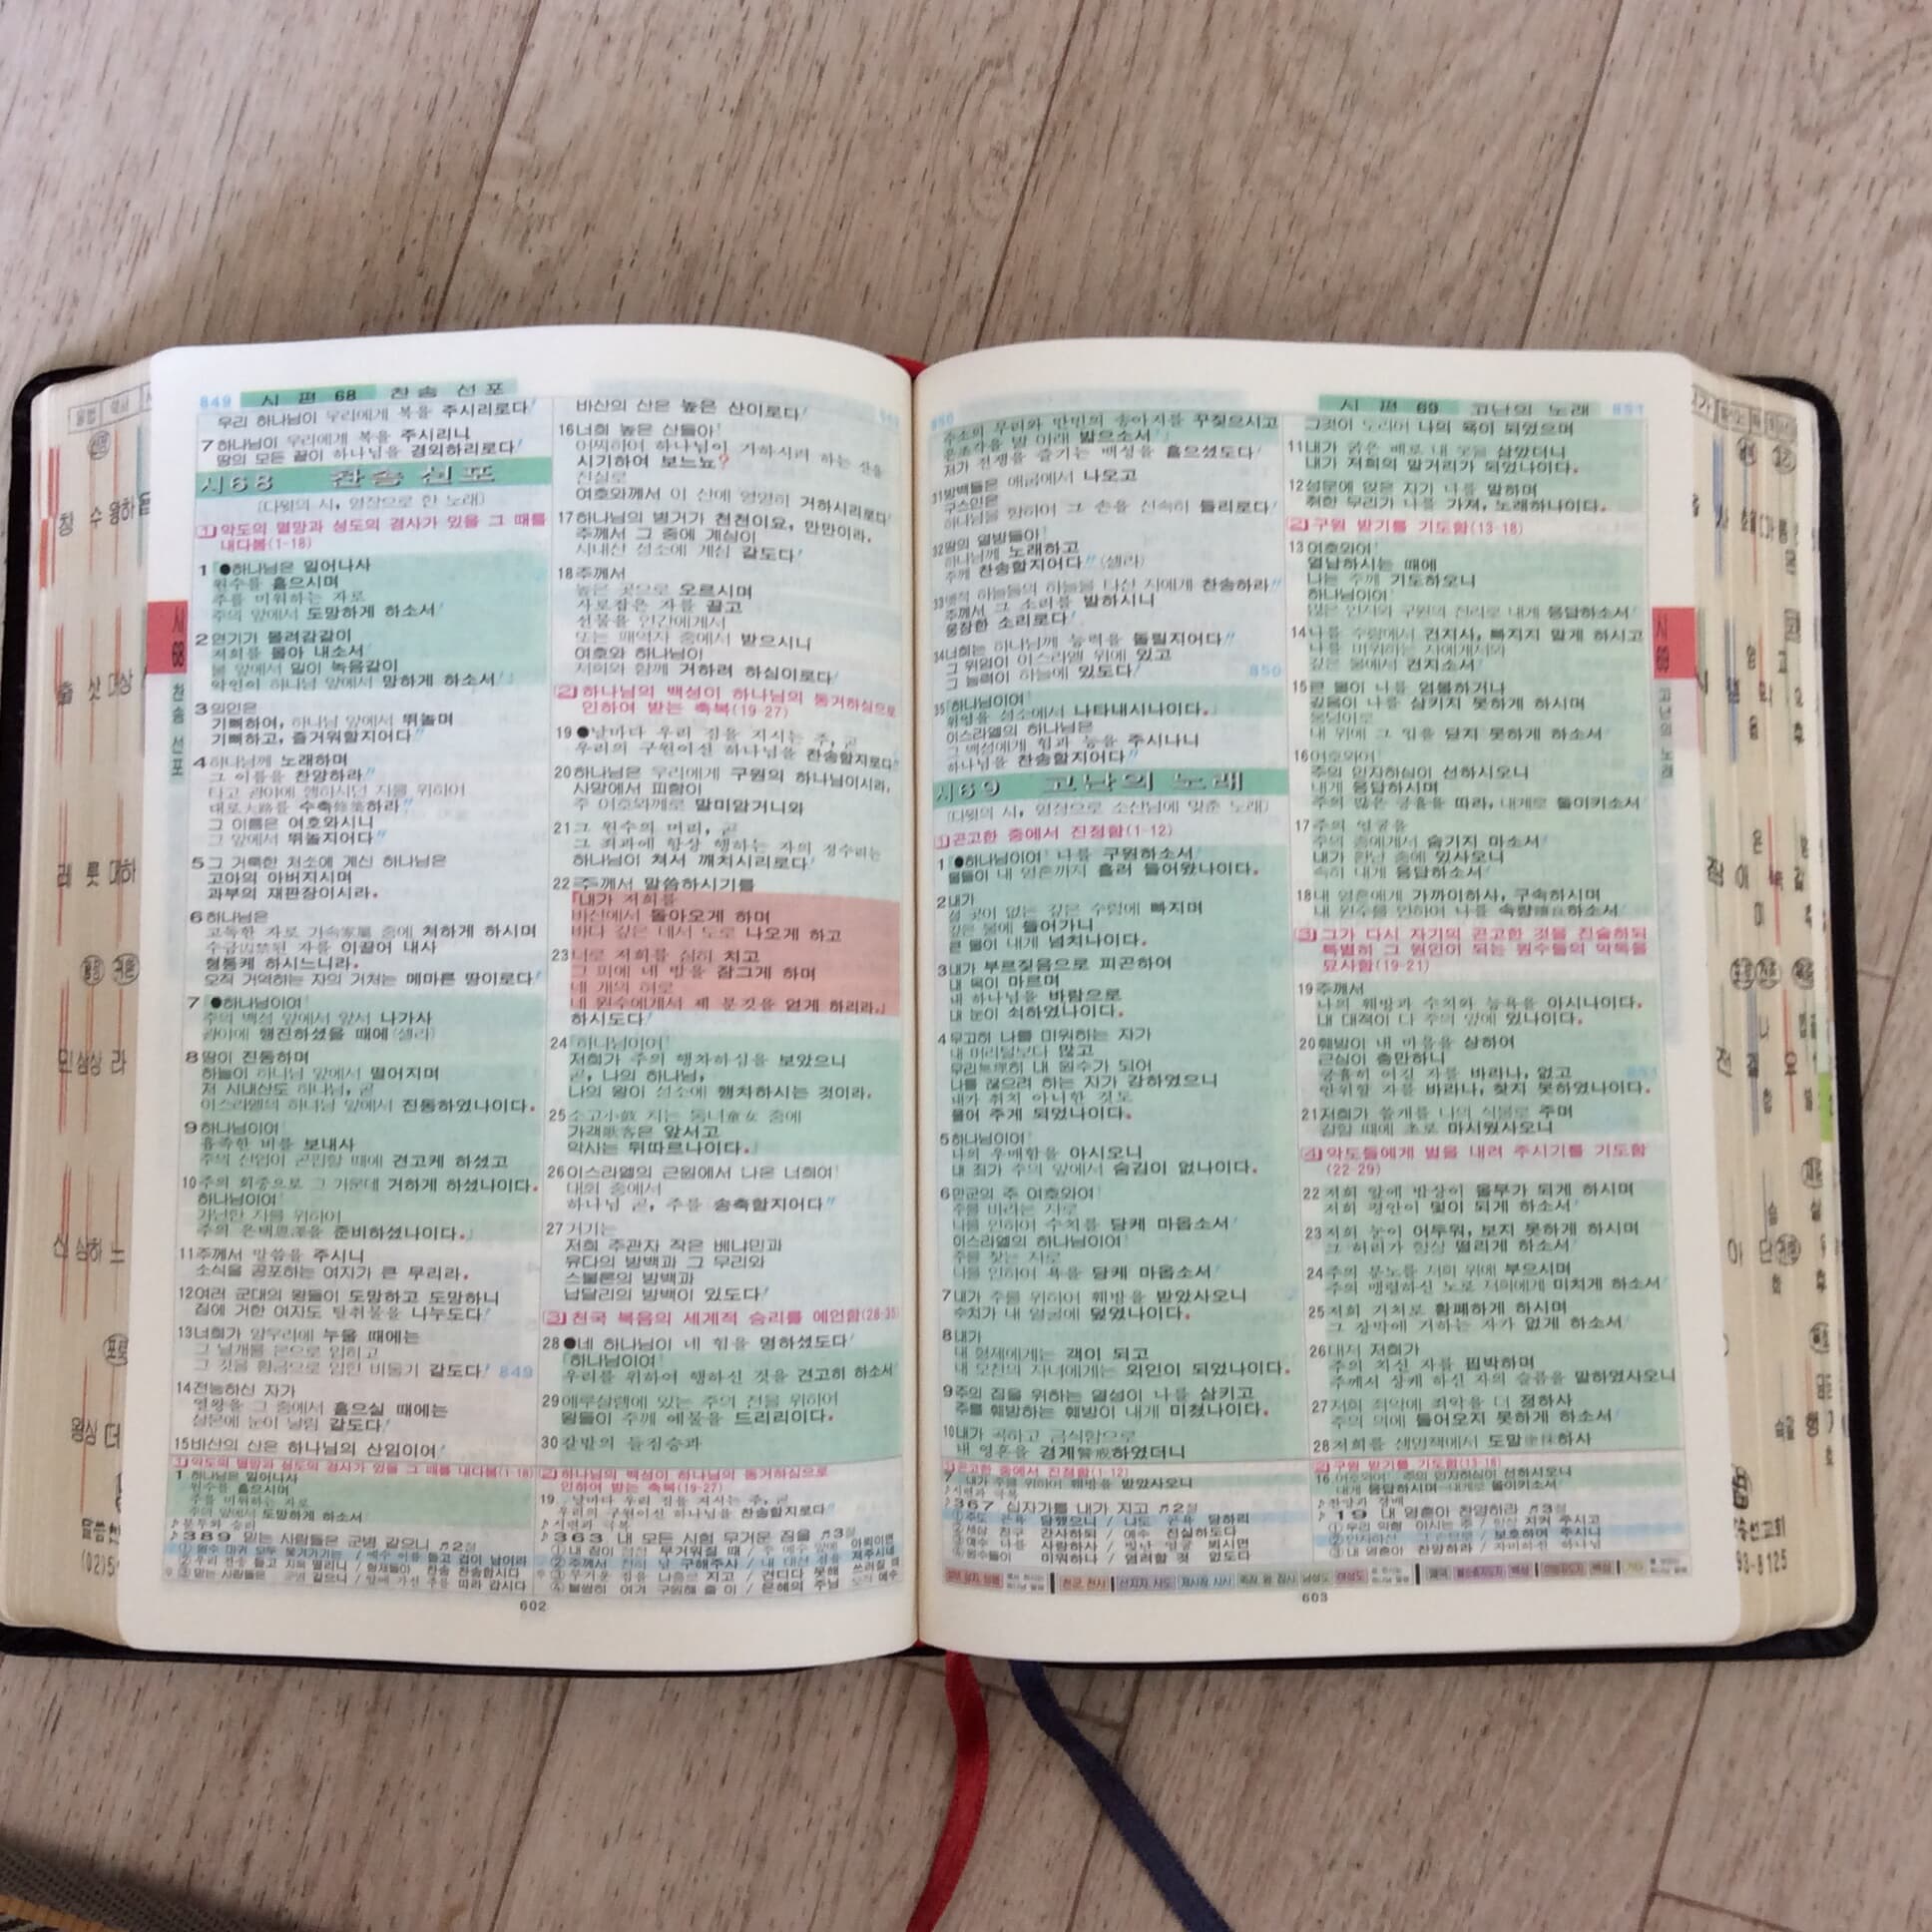 849 시 편 68 찬 송 선 포
우리 하나님이 우리에게 복을 주시리로다!
7하나님이 우리에게 복을 주시리니
땅의 모든 끝이 하나님을 경외하리로다!
시68 찬송 선포
(다윗의 시, 영장으로 한 노래)
1 악도의 멸망과 성도의 경사가 있을 그 때를
내다봄(1-18)
1 ●하나님은 일어나사
원수를 흩으시며
주를 미워하는 자로
주의 앞에서 도망하게 하소서!
2연기가 몰려감같이
저희를 몰아 내소서!
불 앞에서 밀이 녹음같이
악인이 하나님 앞에서 망하게 하소서!
3의인은
기뻐하여, 하나님 앞에서 뛰놀며
기뻐하고, 즐거워할지어다!!
4하나님께 노래하며
그 이름을 찬양하라!!
타고 광야에 행하시던 자를 위하여
대로大路를 수축修築하라!!
그 이름은 여호와시니
그 앞에서 뛰놀지어다!!
5그 거룩한 처소에 계신 하나님은
고아의 아버지시며
과부의 재판장이시라.
6하나님은
고독한 자로 가속家屬 중에 처하게 하시며
수금囚禁된 자를 이끌어 내사
형통케 하시느니라.
오직 거역하는 자의 거처는 메마른 땅이로다!
7 ●하나님이여!
주의 백성 앞에서 앞서 나가사
광야에 행진하셨을 때에(셀라)
8땅이 진동하며
하늘이 하나님 앞에서 떨어지며
저 시내산도 하나님, 곧
이스라엘의 하나님 앞에서 진동하였나이다.
9하나님이여!
흡족한 비를 보내사
주의 산업이 곤핍할 때에 견고케 하셨고
10주의 회중으로 그 가운데 거하게 하셨나이다.
하나님이여!
가난한 자를 위하여
주의 은택恩澤을 준비하셨나이다.
11주께서 말씀을 주시니
소식을 공포하는 여자가 큰 무리라.
12여러 군대의 왕들이 도망하고 도망하니
집에 거한 여자도 탈취물을 나누도다!
13너희가 양우리에 누울 때에는
그 날개를 은으로 입히고
그 깃을 황금으로 입힌 비둘기 같도다! 849
14전능하신 자가
열왕을 그 중에서 흩으실 때에는
살몬에 눈이 날림 같도다!
15바산의 산은 하나님의 산임이여!
바산의 산은 높은 산이로다!
16너희 높은 산들아!
어찌하여 하나님이 거하시려 하는 산을
시기하여 보느뇨?
진실로
여호와께서 이 산에 영영히 거하시리로다!
17하나님의 병거가 천천이요, 만만이라.
주께서 그 중에 계심이
시내산 성소에 계심 같도다!
18주께서
높은 곳으로 오르시며
사로잡은 자를 끌고
선물을 인간에게서
또는 패역자 중에서 받으시니
여호와 하나님이
저희와 함께 거하려 하심이로다!
2 하나님의 백성이 하나님의 동거하심으로
인하여 받는 축복(19-27)
19●날마다 우리 짐을 지시는 주, 곧
우리의 구원이신 하나님을 찬송할지로다!!
20하나님은 우리에게 구원의 하나님이시라.
사망에서 피함이
주 여호와께로 말미암거니와
21그 원수의 머리, 곧
그 죄과에 항상 행하는 자의 정수리는
하나님이 쳐서 깨치시리로다!
22주께서 말씀하시기를
「내가 저희를
바산에서 돌아오게 하며
바다 깊은 데서 도로 나오게 하고
23너로 저희를 심히 치고
그 피에 네 발을 잠그게 하며
네 개의 혀로
네 원수에게서 제 분깃을 얻게 하리라.」
하시도다!
24「하나님이여!
저희가 주의 행차하심을 보았으니
곧, 나의 하나님,
나의 왕이 성소에 행차하시는 것이라.
25소고小鼓 치는 동녀童女 중에
가객歌客은 앞서고
악사는 뒤따르나이다.」
26이스라엘의 근원에서 나온 너희여!
대회 중에서
하나님 곧, 주를 송축할지어다!!
27거기는
저희 주관자 작은 베냐민과
유다의 방백과 그 무리와
스불론의 방백과
납달리의 방백이 있도다!
3 천국 복음의 세계적 승리를 예언함(28-35)
28●네 하나님이 네 힘을 명하셨도다!
「하나님이여!
우리를 위하여 행하신 것을 견고히 하소서!
29예루살렘에 있는 주의 전을 위하여
왕들이 주께 예물을 드리리이다.
30갈밭의 들짐승과
1 악도의 멸망과 성도의 경사가 있을 그 때를 내다봄(1-18)
1 하나님은 일어나사
원수를 흩으시며
주를 미워하는 자로
주의 앞에서 도망하게 하소서!
♪분투와 승리
♪389 믿는 사람들은 군병 같으니 ♬2절
2 하나님의 백성이 하나님의 동거하심으로
인하여 받는 축복(19-27)
19. 날마다 우리 짐을 지시는 주, 곧
우리의 구원이신 하나님을 찬송할지로다!!
♪시련과 극복
♪363 내 모든 시험 무거운 짐을 ♬3절
602
시 편 69 고난의 노래 851
수소의 무리와 만민의 송아지를 꾸짖으시고
은조각을 발 아래 밟으소서!」
저가 전쟁을 즐기는 백성을 흩으셨도다!
31방백들은 애굽에서 나오고
구스인은
하나님을 향하여 그 손을 신속히 들리로다!
32땅의 열방들아!
하나님께 노래하고
주께 찬송할지어다!!(셀라)
33옛적 하늘들의 하늘을 타신 자에게 찬송하라!!
주께서 그 소리를 발하시니
웅장한 소리로다!
34너희는 하나님께 능력을 돌릴지어다!!
그 위엄이 이스라엘 위에 있고
그 능력이 하늘에 있도다! 850
35「하나님이여!
위엄을 성소에서 나타내시나이다.」
이스라엘의 하나님은
그 백성에게 힘과 능을 주시나니
하나님을 찬송할지어다!!
시69 고난의 노래
(다윗의 시, 영장으로 소산님에 맞춘 노래)
1 곤고한 중에서 진정함(1-12)
1 ●하나님이여! 나를 구원하소서!
물들이 내 영혼까지 흘러 들어왔나이다.
2내가
설 곳이 없는 깊은 수렁에 빠지며
깊은 물에 들어가니
큰 물이 내게 넘치나이다.
3내가 부르짖음으로 피곤하여
내 목이 마르며
내 하나님을 바람으로
내 눈이 쇠하였나이다.
4무고히 나를 미워하는 자가
내 머리털보다 많고
무리無理히 내 원수가 되어
나를 끊으려 하는 자가 강하였으니
내가 취치 아니한 것도
물어 주게 되었나이다.
5하나님이여!
나의 우매함을 아시오니
내 죄가 주의 앞에서 숨김이 없나이다.
6만군의 주 여호와여!
주를 바라는 자로
나를 인하여 수치를 당케 마옵소서!
이스라엘의 하나님이여!
주를 찾는 자로
나를 인하여 욕을 당케 마옵소서!
7내가 주를 위하여 훼방을 받았사오니
수치가 내 얼굴에 덮였나이다.
8내가
내 형제에게는 객이 되고
내 모친의 자녀에게는 외인이 되었나이다.
9주의 집을 위하는 열성이 나를 삼키고
주를 훼방하는 훼방이 내게 미쳤나이다.
10내가 곡하고 금식함으로
내 영혼을 경계警戒하였더니
그것이 도리어 나의 욕이 되었으며
11내가 굵은 베로 내 옷을 삼았더니
내가 저희의 말거리가 되었나이다.
12성문에 앉은 자가 나를 말하며
취한 무리가 나를 가져, 노래하나이다.
2 구원 받기를 기도함(13-18)
13여호와여!
열납하시는 때에
나는 주께 기도하오니
하나님이여!
많은 인자와 구원의 진리로 내게 응답하소서!
14나를 수렁에서 건지사, 빠지지 말게 하시고
나를 미워하는 자에게서와
깊은 물에서 건지소서!
15큰 물이 나를 엄몰하거나
깊음이 나를 삼키지 못하게 하시며
웅덩이로
내 위에 그 입을 닫지 못하게 하소서!
16여호와여!
주의 인자하심이 선하시오니
내게 응답하시며
주의 많은 긍휼을 따라, 내게로 돌이키소서!
17주의 얼굴을
주의 종에게서 숨기지 마소서!
내가 환난 중에 있사오니
속히 내게 응답하소서!
18내 영혼에게 가까이하사, 구속하시며
내 원수를 인하여 나를 속량贖良하소서!
3 그가 다시 자기의 곤고한 것을 진술하되
특별히 그 원인이 되는 원수들의 악독을
묘사함(19-21)
19주께서
나의 훼방과 수치와 능욕을 아시나이다.
내 대적이 다 주의 앞에 있나이다.
20훼방이 내 마음을 상하여
근심이 충만하니
긍휼히 여길 자를 바라나, 없고
안위할 자를 바라나, 찾지 못하였나이다.
21저희가 쓸개를 나의 식물로 주며
갈할 때에 초로 마시웠사오니
4 악도들에게 벌을 내려 주시기를 기도함
(22-29)
22저희 앞에 밥상이 올무가 되게 하시며
저희 평안이 덫이 되게 하소서!
23저희 눈이 어두워, 보지 못하게 하시며
그 허리가 항상 떨리게 하소서!
24주의 분노를 저의 위에 부으시며
주의 맹렬하신 노로 저희에게 미치게 하소서!
25저희 거처로 황폐하게 하시며
그 장막에 거하는 자가 없게 하소서!
26대저 저희가
주의 치신 자를 핍박하며
주께서 상케 하신 자의 슬픔을 말하였사오니
27저희 죄악에 죄악을 더 정하사
주의 의에 들어오지 못하게 하소서!
28저희를 생명책에서 도말塗抹하사
1 곤고한 중에서 진정함(1-12)
7 내가 주를 위하여 훼방을 받았사오니
♪시련과 극복
♪367 십자가를 내가 지고 ♬2절
2 구원 받기를 기도함(13-18)
16 여호와여! 주의 인자하심이 선하시오니
내게 응답하시며 내게로 돌이키소서!
♪찬양과 경배
♪19 내 영혼아 찬양하라 ♬3절
603